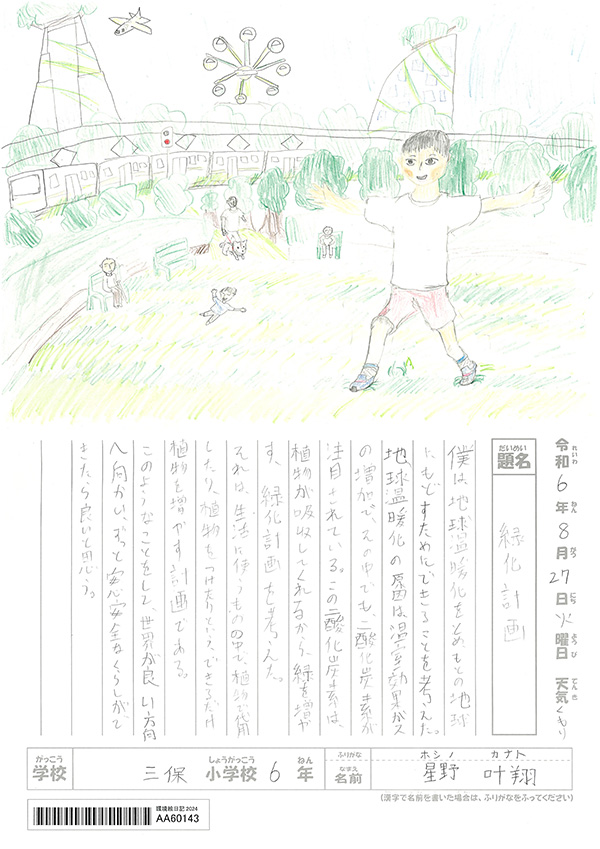 令和6年8月27日火曜日 天気くもり
れいわ ねん がつ にち ようび てんき
題名
だいめい
緑化計画
僕は、地球温暖化をとめ、もとの地球
にもどすためにできることを考えた。
地球温暖化の原因は、温室効果ガス
の増加で、その中でも、二酸化炭素が
注目されている。この二酸化炭素は、
植物が吸収してくれるから、緑を増や
す、緑化計画を考えた。
それは、生活に使うものの中で、植物で代用
したり、植物をつけたりという、できるだけ
植物を増やす計画である。
このようなことをして、世界が良い方向
へ向かい、ずっと安心安全なくらしがで
きたら良いと思う。
がっこう しょうがっこう ねん
学校 三保 小学校 6 年
ふりがな ホシノ カナト
なまえ
名前 星野 叶翔
(漢字で名前を書いた場合は、ふりがなをふってください)
環境絵日記2024
AA60143